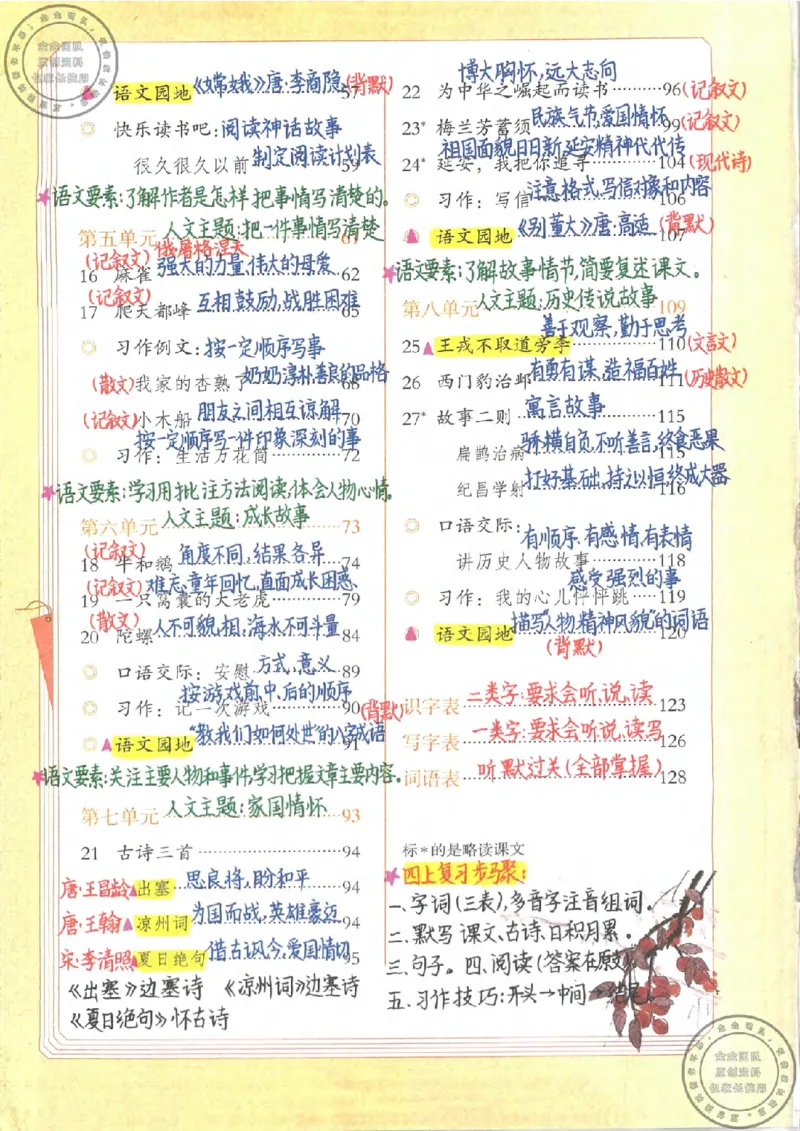 语文园地《嫦娥》唐·李商隐(背默)57
快乐读书吧:阅读神话故事
很久很久以前 制定阅读计划表 59
★语文要素:了解作者是怎样把事情写清楚的。
第五单元 人文主题:把一件事情写清楚 61
(记叙文) 俄屠格涅夫
16 麻雀 强大的力量,伟大的母爱 62
(记叙文)
17 爬天都峰 互相鼓励,战胜困难 65
习作例文:按一定顺序写事
(散文)我家的杏熟了 奶奶淳朴善良的品格 68
(记叙文)小木船 朋友之间相互谅解 70
按一定顺序写一件印象深刻的事
习作:生活万花筒 72
★语文要素:学习用批注方法阅读,体会人物心情。
第六单元 人文主题:成长故事 73
(记叙文)
18 牛和鹅 角度不同,结果各异 74
(记叙文) 难忘童年回忆,直面成长困惑
19 一只窝囊的大老虎 79
(散文)
20 陀螺 人不可貌相,海水不可斗量 84
口语交际:安慰 方式,意义 89
按游戏前,中,后的顺序
习作:记一次游戏 90
▲语文园地 "教我们如何处世"的八字成语 (背默) 91
★语文要素:关注主要人物和事件,学习把握文章主要内容。
第七单元 人文主题:家国情怀 93
21 古诗三首 94
唐·王昌龄▲出塞 思良将,盼和平 94
唐·王翰▲凉州词 为国而战,英雄豪迈 94
宋·李清照▲夏日绝句 借古讽今,爱国情切 95
《出塞》边塞诗 《凉州词》边塞诗
《夏日绝句》怀古诗
博大胸怀,远大志向
22 为中华之崛起而读书 96(记叙文)
23* 梅兰芳蓄须 民族气节,爱国情怀 99(记叙文)
祖国面貌日日新,延安精神代代传
24* 延安,我把你追寻 104(现代诗)
习作:写信 注意格式,写信对象和内容 106
语文园地《别董大》唐·高适 (背默) 107
★语文要素:了解故事情节,简要复述课文。
第八单元 人文主题:历史传说故事 109
善于观察,勤于思考
25▲王戎不取道旁李 110(文言文)
26 西门豹治邺 有勇有谋,造福百姓 111(历史散文)
27* 故事二则 寓言故事 115
扁鹊治病 骄横自负,不听善言,终食恶果 115
纪昌学射 打好基础,持之以恒,终成大器 116
口语交际:有顺序,有感情,有表情
讲历史人物故事 118
感受强烈的事
习作:我的心儿怦怦跳 119
语文园地 描写"人物精神风貌"的词语 120
(背默)
识字表 二类字:要求会听,说,读 123
写字表 一类字:要求会听,说,读,写 126
词语表 听默过关(全部掌握) 128
标*的是略读课文
★四上复习步骤:
一、字词(三表),多音字注音组词。
二、默写课文、古诗、日积月累。
三、句子。四、阅读(答案在原文)
五、习作技巧:开头→中间→结尾。